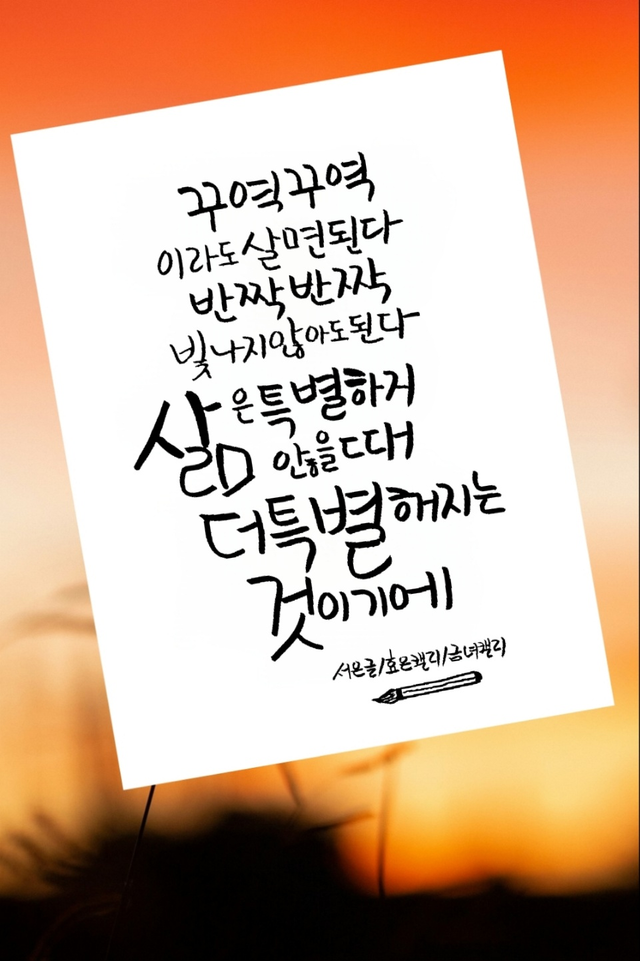 꾸역꾸역
이라도살면된다
반짝반짝
빛나지않아도된다
삶은특별하거
않을때
더특별해지는
것이기에
서온글/효온캘리/금녀캘리